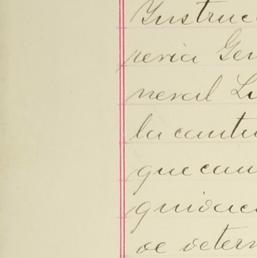 Instruc
peria Gen
neral Li
la cantu
que can
quidaci
de deter